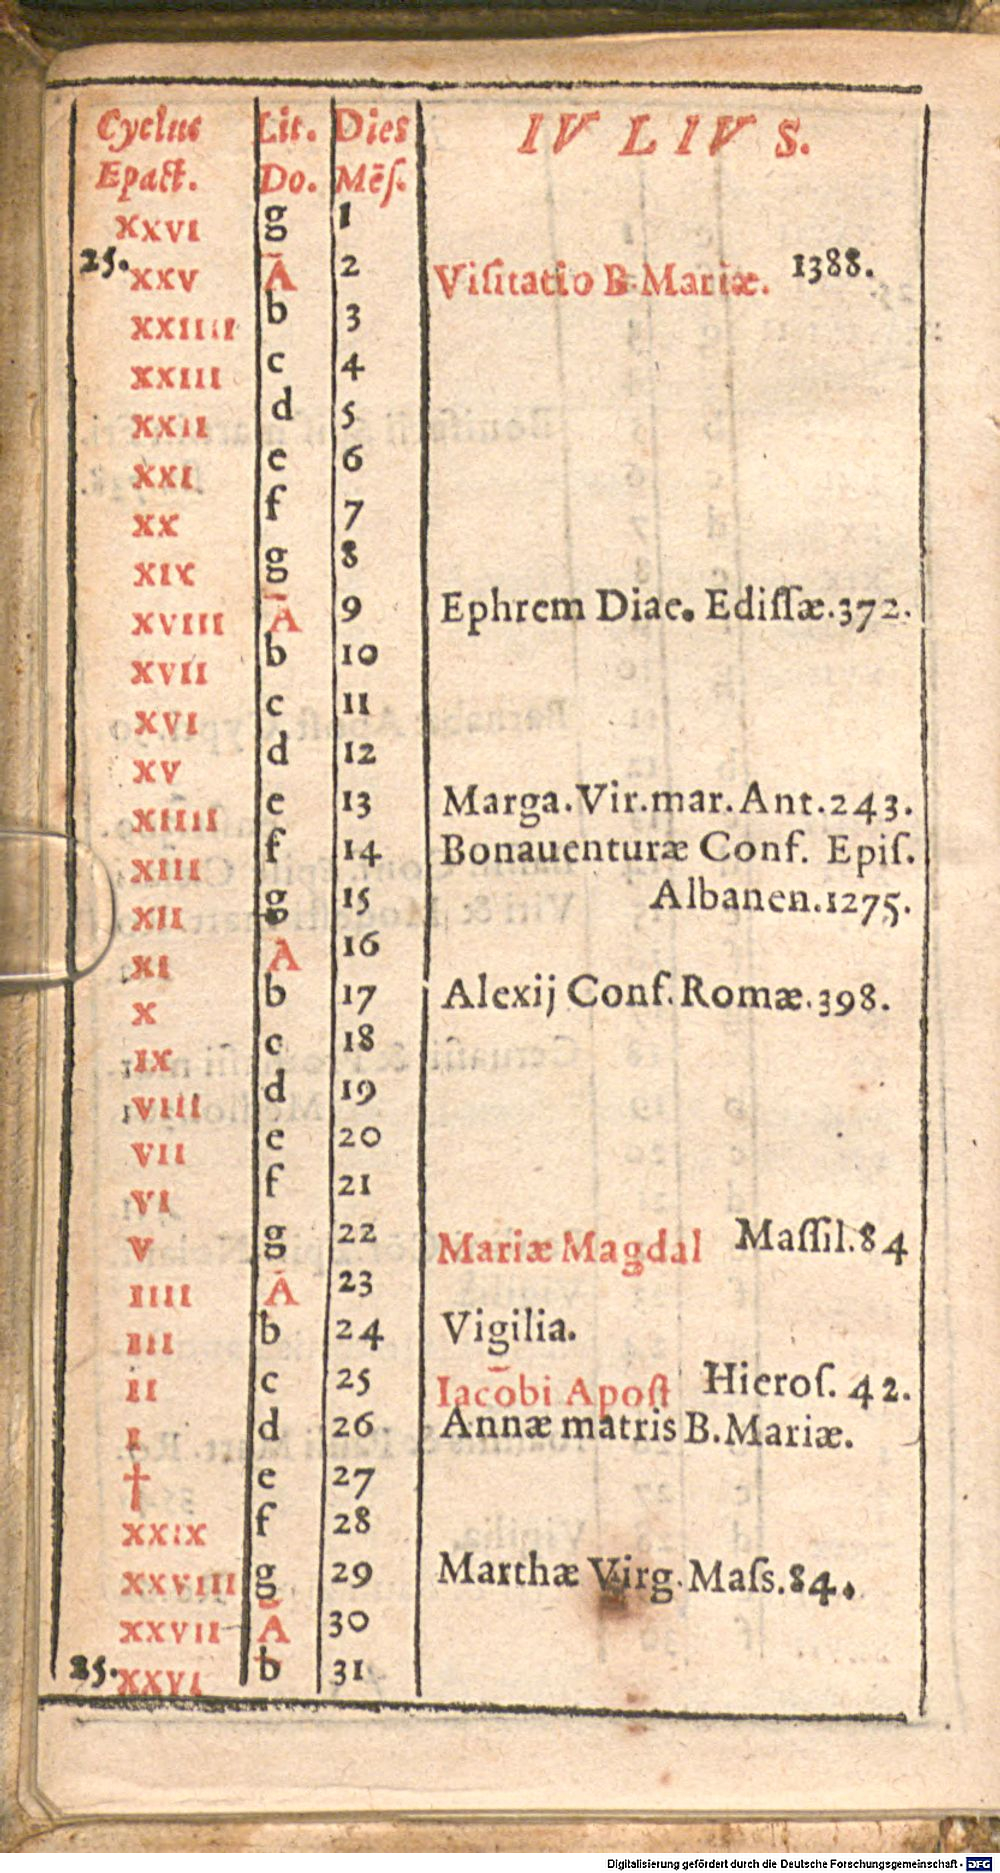 Cyclus Lit. Dies IVLIVS.
Epact. Do. Mēſ.
XXVI g 1
25. XXV A 2 Viſitatio B Mariæ. 1388.
XXIIII b 3
XXIII c 4
XXII d 5
XXI e 6
XX f 7
XIX g 8
XVIII A 9 Ephrem Diac. Ediſſæ.372.
XVII b 10
XVI c 11
XV d 12
XIIII e 13 Marga.Vir.mar.Ant.243.
XIII f 14 Bonauenturæ Conf. Epiſ.
XII g 15 Albanen.1275.
XI A 16
X b 17 Alexij Conf.Romæ.398.
IX c 18
VIII d 19
VII e 20
VI f 21
V g 22 Mariæ Magdal Maſſil.84
IIII A 23
III b 24 Vigilia.
II c 25 Iacobi Apoſt Hieroſ. 42.
I d 26 Annæ matris B.Mariæ.
† e 27
XXIX f 28
XXVIII g 29 Marthæ Virg.Maſs.84.
XXVII A 30
25. XXVI b 31
Digitalisierung gefördert durch die Deutsche Forschungsgemeinschaft - DFG